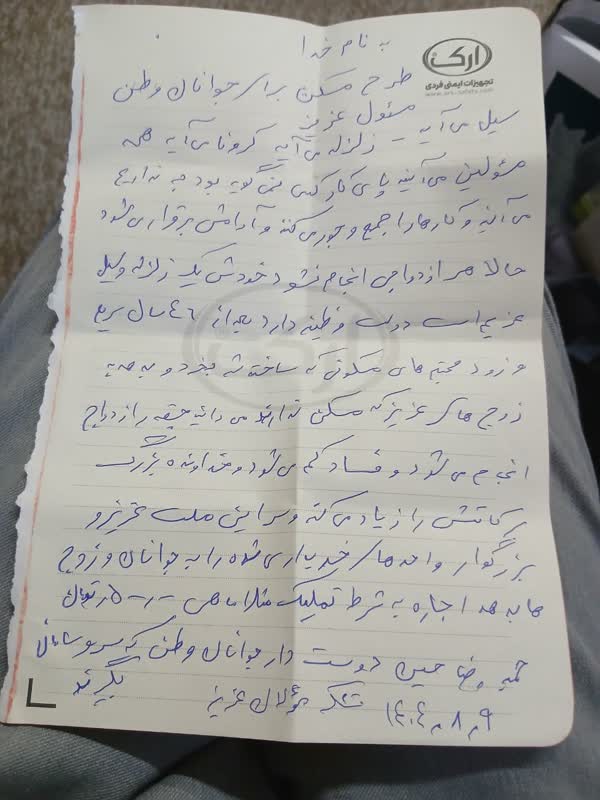 به نام خدا
ارک
تجهیزات ایمنی فردی
طرح مسکن برای جوانان وطن
مسئول عزیز
سیل می‌آید - زلزله می‌آید کرونا می‌آید همه
مسئولین می‌آیند پای کار کسی نمی‌گوید بودجه نداریم
می‌آیند و کارها را جمع و جور می‌کنند و آرامش برقرار می‌شود
حالا هر ازدواجی انجام نشود خودش یک زلزله و سیل
عزیم است دولت وظیفه دارد بعد از ۴۶ سال سریع
و زود مجتمع های مسکونی که ساخته شده بخرد و بدهد به
زوج های عزیز که مسکن ندارند می‌دانید چقدر ازدواج
انجام می‌شود و فساد کم می‌شود و خداوند بزرگ
برکاتش را زیاد می‌کند و سر این ملت عزیز و
بزرگوار واحدهای خریداری شده را به جوانان و زوج
ها بدهد اجاره به شرط تملیک مثلا ماهی تومان
حسین دوست دار جوانان وطن که سر و سامان
بگیرند
تشکر مسئولان عزیز
۱۴۰۴٫۸٫۹